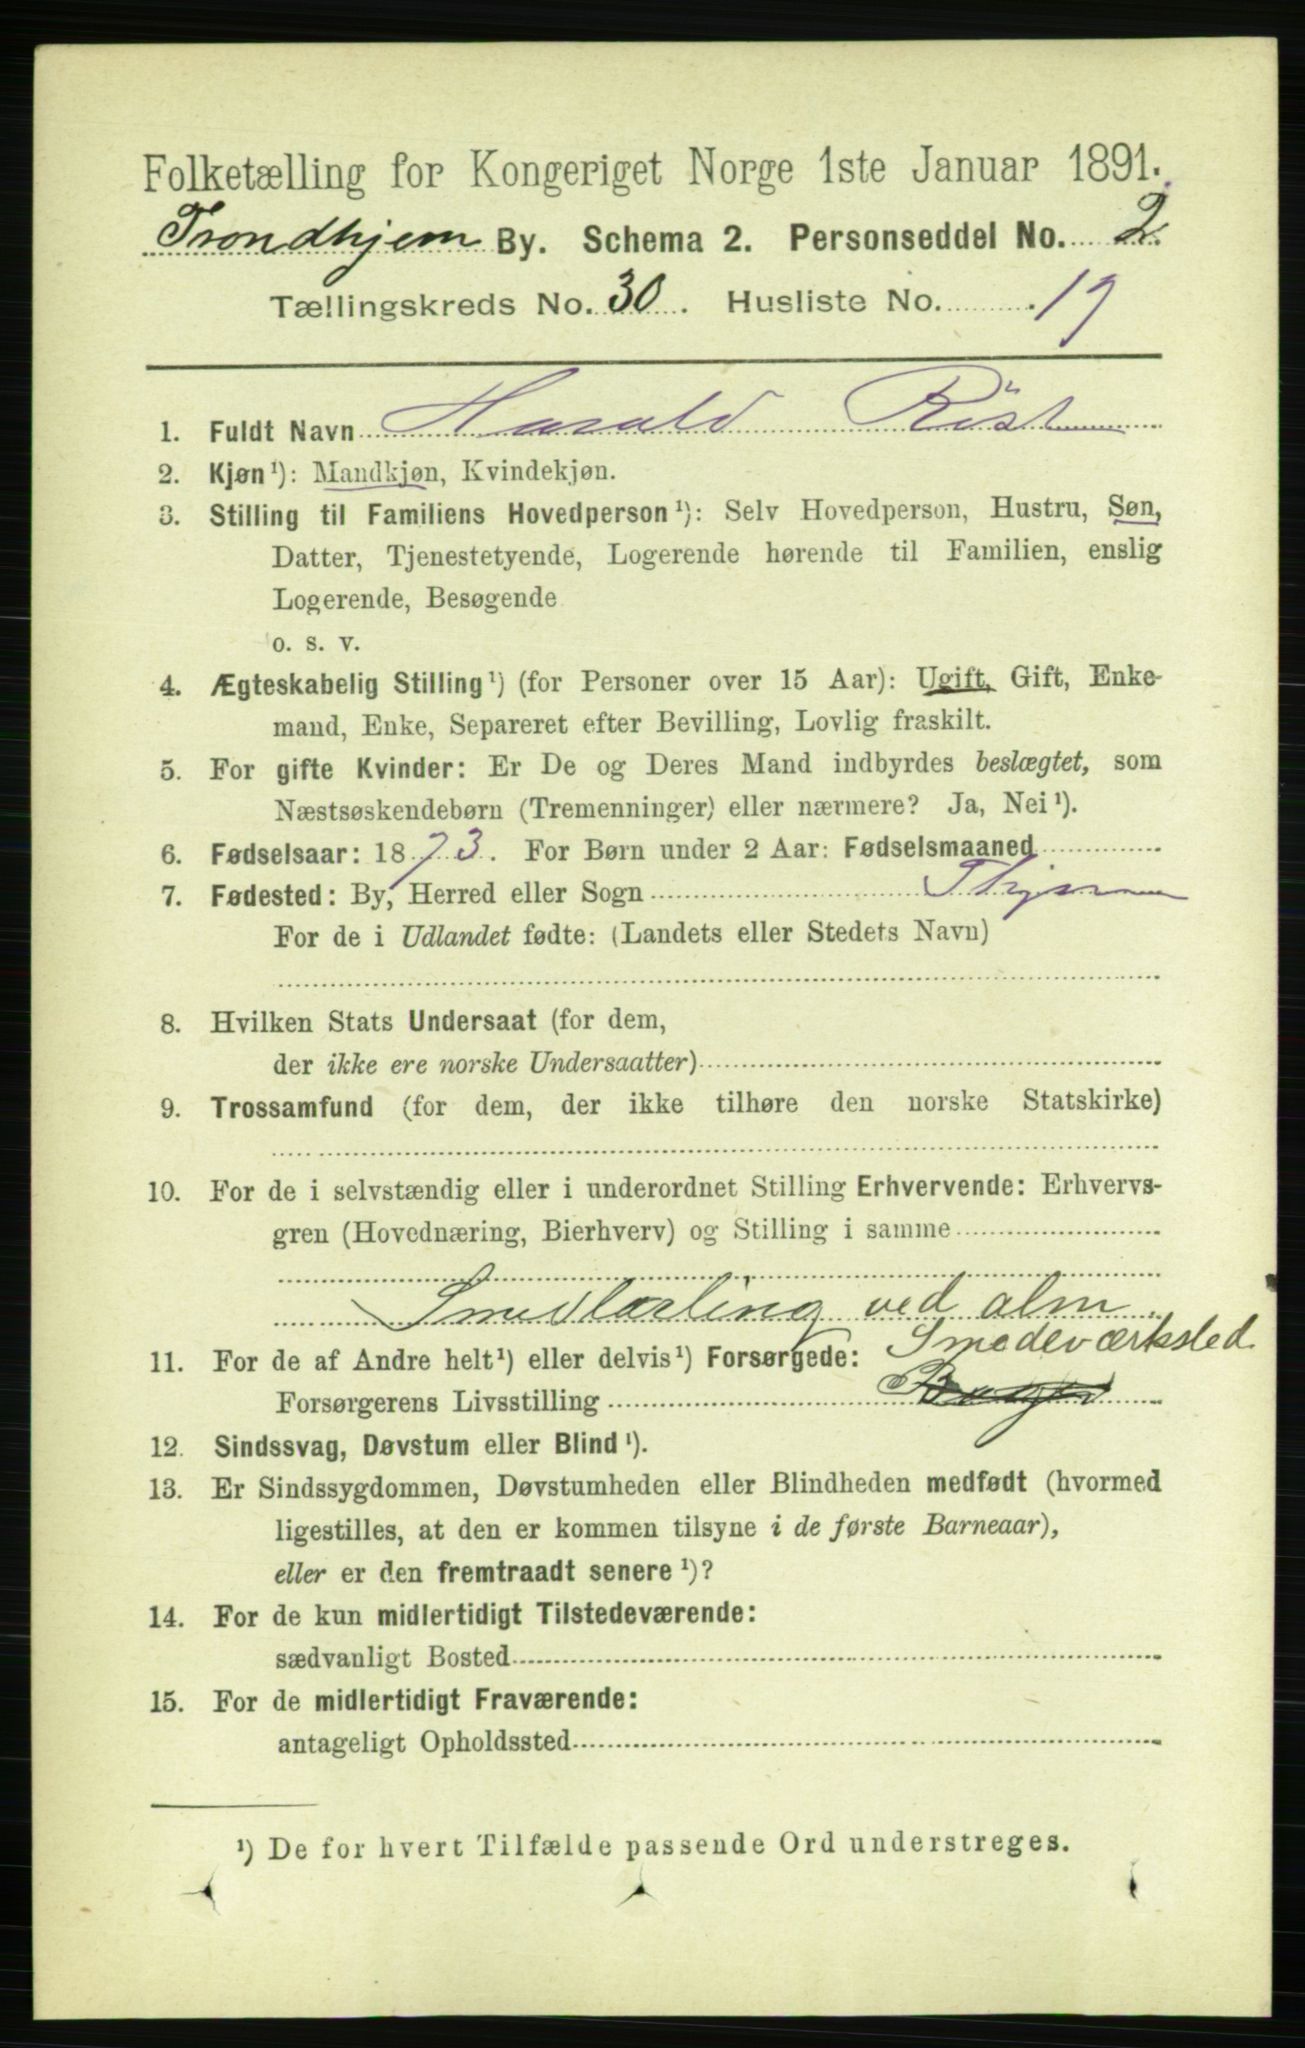 Folketælling for Kongeriget Norge 1ste Januar 1891.
Trondhjem By. Schema 2. Personseddel No. 2.
Tællingskreds No. 30. Husliste No. 19
1. Fuldt Navn Harald Rist
2. Kjøn¹): Mandkjøn, Kvindekjøn.
3. Stilling til Familiens Hovedperson¹): Selv Hovedperson, Hustru, Søn,
Datter, Tjenestetyende, Logerende hørende til Familien, enslig
Logerende, Besøgende
o. s. v.
4. Ægteskabelig Stilling¹) (for Personer over 15 Aar): Ugift, Gift, Enke-
mand, Enke, Separeret efter Bevilling, Lovlig fraskilt.
5. For gifte Kvinder: Er De og Deres Mand indbyrdes beslægtet, som
Næstsøskendebørn (Tremenninger) eller nærmere? Ja, Nei¹).
6. Fødselsaar: 1873. For Børn under 2 Aar: Fødselsmaaned
7. Fødested: By, Herred eller Sogn Thjem
For de i Udlandet fødte: (Landets eller Stedets Navn)
8. Hvilken Stats Undersaat (for dem,
der ikke ere norske Undersaatter)
9. Trossamfund (for dem, der ikke tilhøre den norske Statskirke)
10. For de i selvstændig eller i underordnet Stilling Erhvervende: Erhvervs-
gren (Hovednæring, Bierhverv) og Stilling i samme
Smedlærling ved alm.
Smedeværksted
11. For de af Andre helt¹) eller delvis¹) Forsørgede:
Forsørgerens Livsstilling
12. Sindssvag, Døvstum eller Blind¹).
13. Er Sindssygdommen, Døvstumheden eller Blindheden medfødt (hvormed
ligestilles, at den er kommen tilsyne i de første Barneaar),
eller er den fremtraadt senere¹)?
14. For de kun midlertidigt Tilstedeværende:
sædvanligt Bosted
15. For de midlertidigt Fraværende:
antageligt Opholdssted
¹) De for hvert Tilfælde passende Ord understreges.